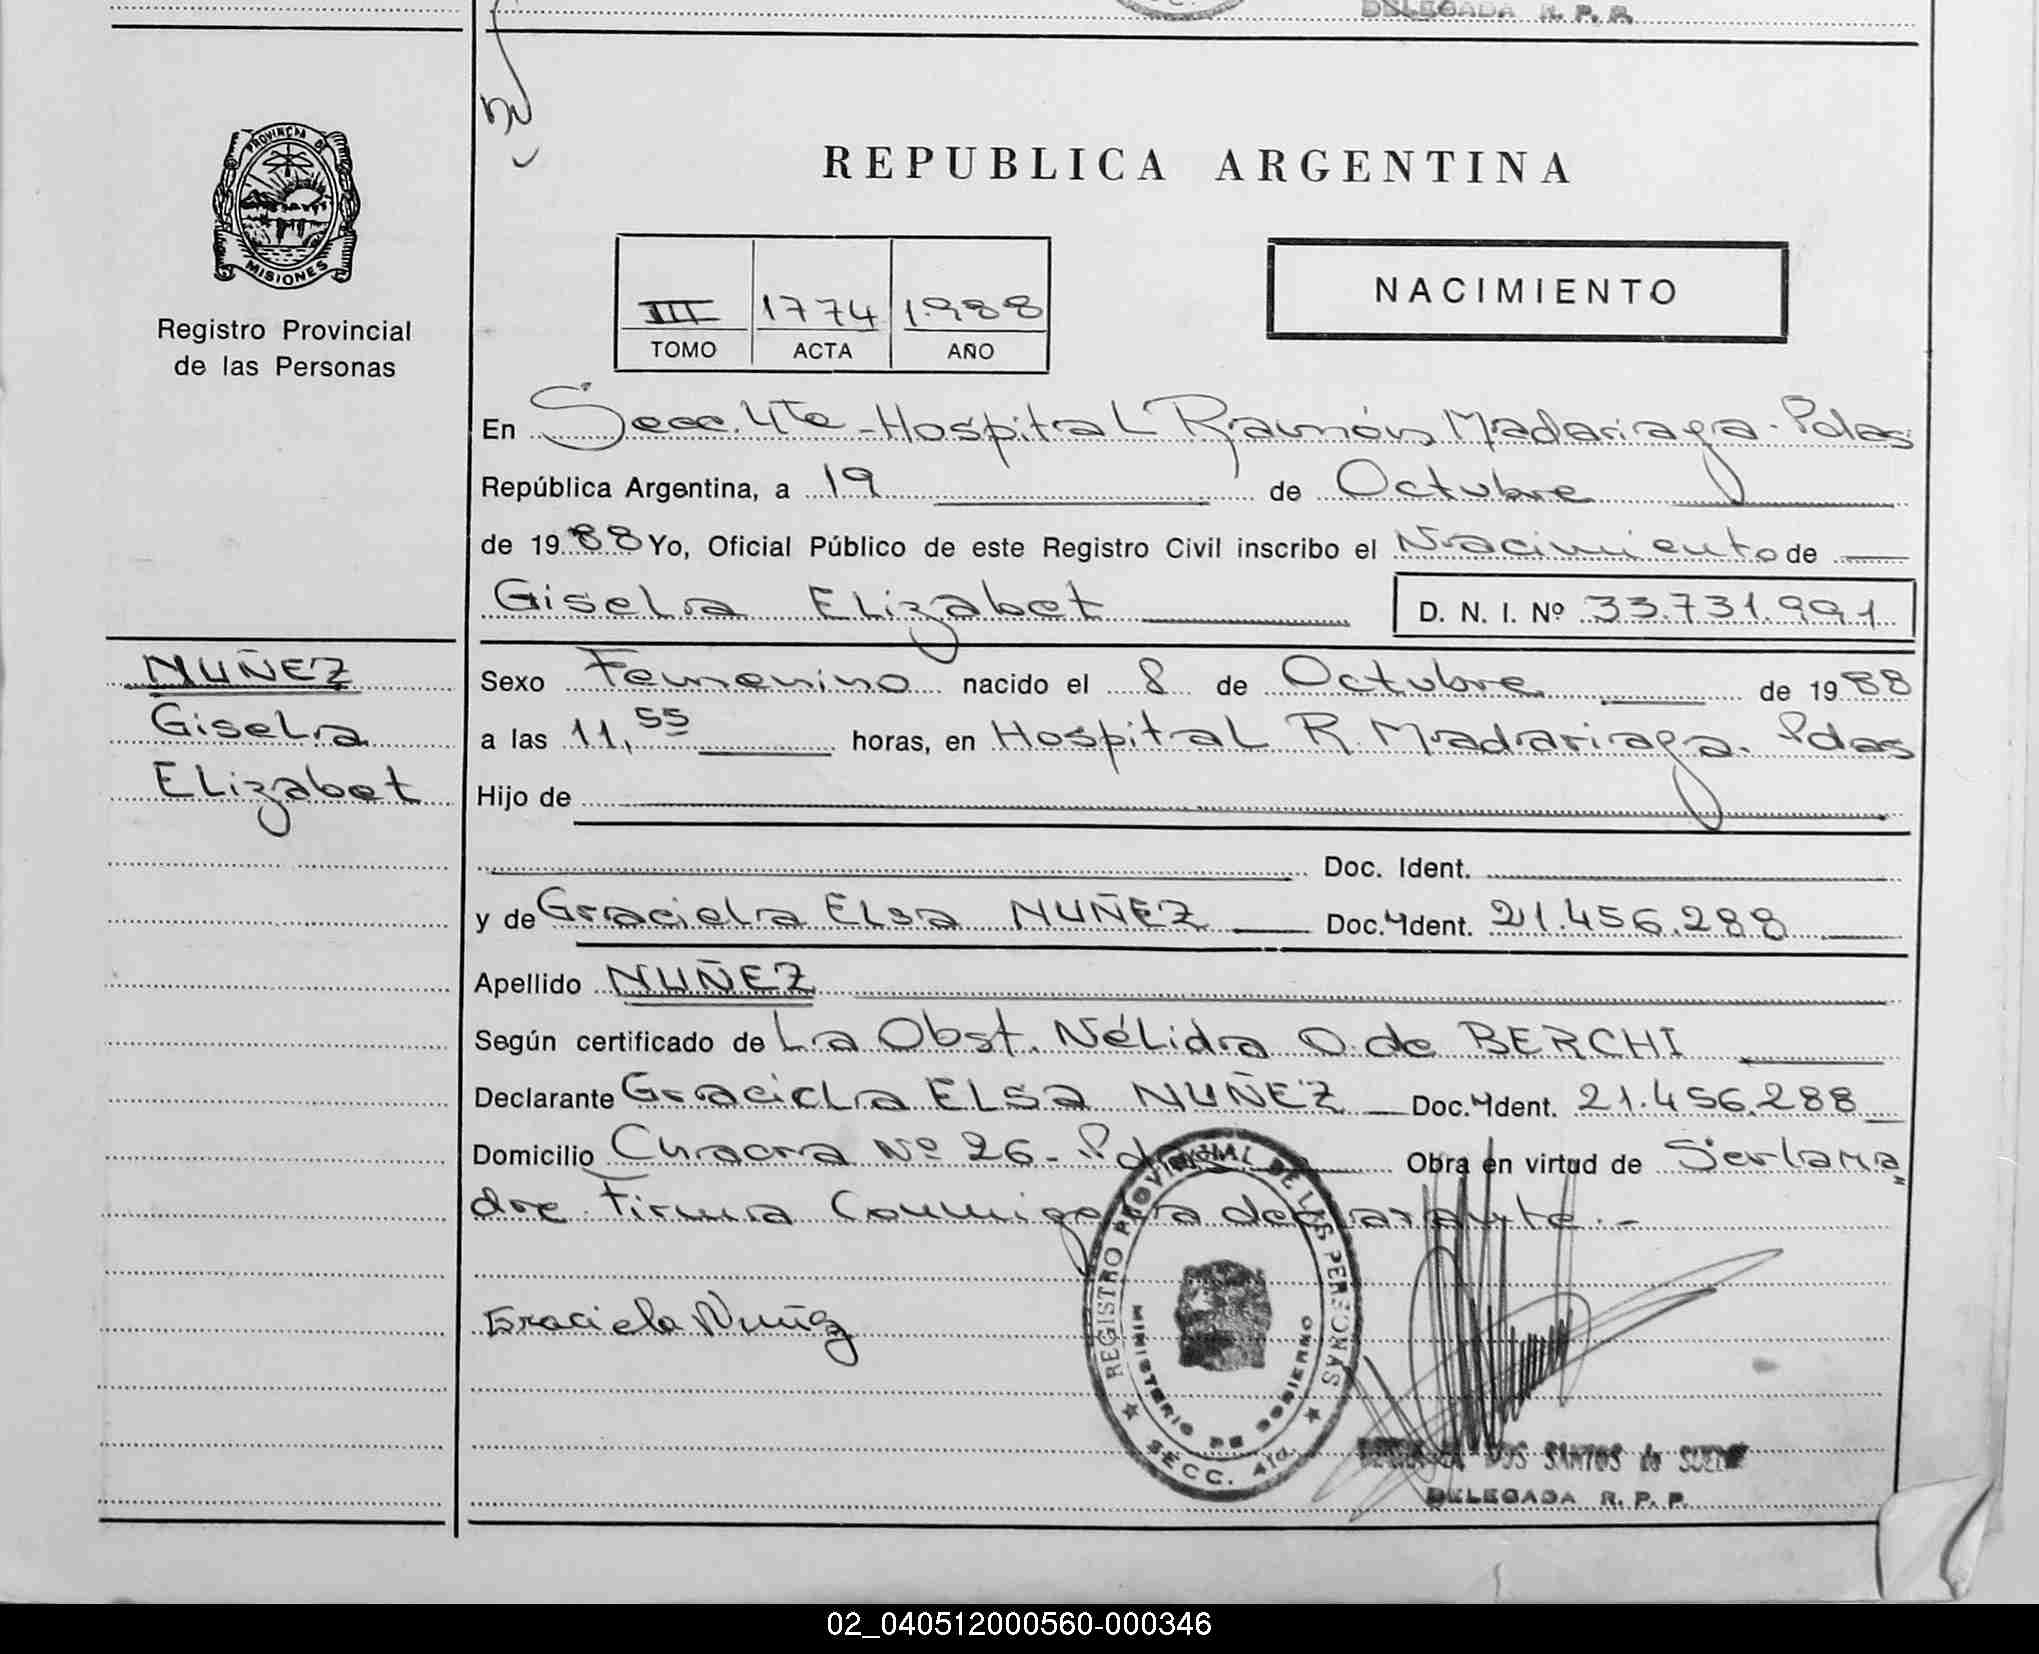 DELEGADA R. P. P.
PROVINCIA DE
MISIONES
Registro Provincial
de las Personas
REPUBLICA ARGENTINA
III 1774 1988
TOMO ACTA AÑO
NACIMIENTO
En Secc. 4ta - Hospital Ramón Madariaga. Pdas
República Argentina, a 19 de Octubre
de 1988 Yo, Oficial Público de este Registro Civil inscribo el Nacimiento de
Gisela Elizabet D. N. I. Nº 33.731.991
NUÑEZ
Gisela
Elizabet
Sexo Femenino nacido el 8 de Octubre de 1988
a las 11,55 horas, en Hospital R. Madariaga. Pdas
Hijo de
Doc. Ident.
y de Graciela Elsa NUÑEZ Doc. Ident. 21.456.288
Apellido NUÑEZ
Según certificado de La Obst. Nélida O. de BERCHI
Declarante Graciela ELSA NUÑEZ Doc. Ident. 21.456.288
Domicilio Chacra Nº 26 - Pdas Obra en virtud de Ser la ma
dre. Firma Conmigo la declarante. -
Graciela Nuñez
REGISTRO PROVINCIAL DE LAS PERSONAS
MINISTERIO DE GOBIERNO
SECC. 4ta.
DOS SANTOS de
DELEGADA R. P. P.
02_040512000560-000346